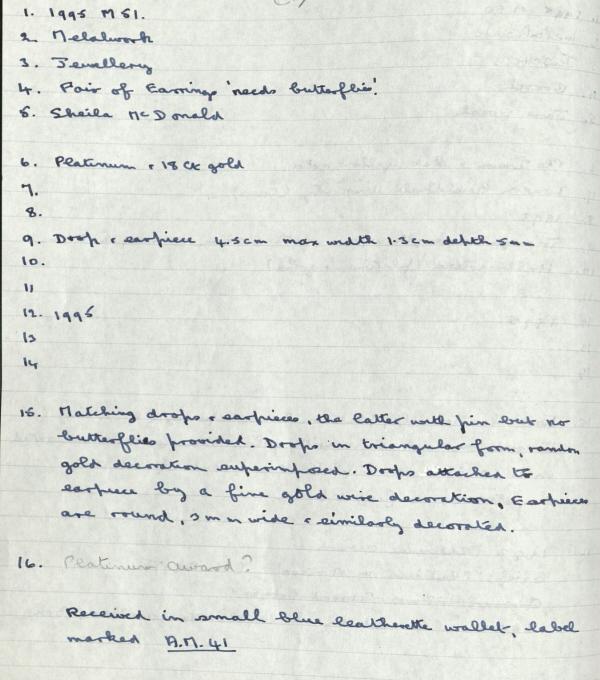 1. 1995 M51.
2. Metalwork
3. Jewellery
4. Pair of Earrings 'needs butterflies'.
5. Sheila McDonald
6. Platinum & 18 ck gold
7.
8.
9. Drop & earpiece 4.5cm max width 1.3cm depth 5mm
10.
11
12. 1995
13
14
15. Matching drops & earpieces, the latter with pin but no
butterflies provided. Drops in triangular form, random
gold decoration superimposed. Drops attached to
earpiece by a fine gold wire decoration, Earpieces
are round, 3mm wide & similarly decorated.
16. Platinum award?
Received in small blue leatherette wallet, label
marked A.M. 41